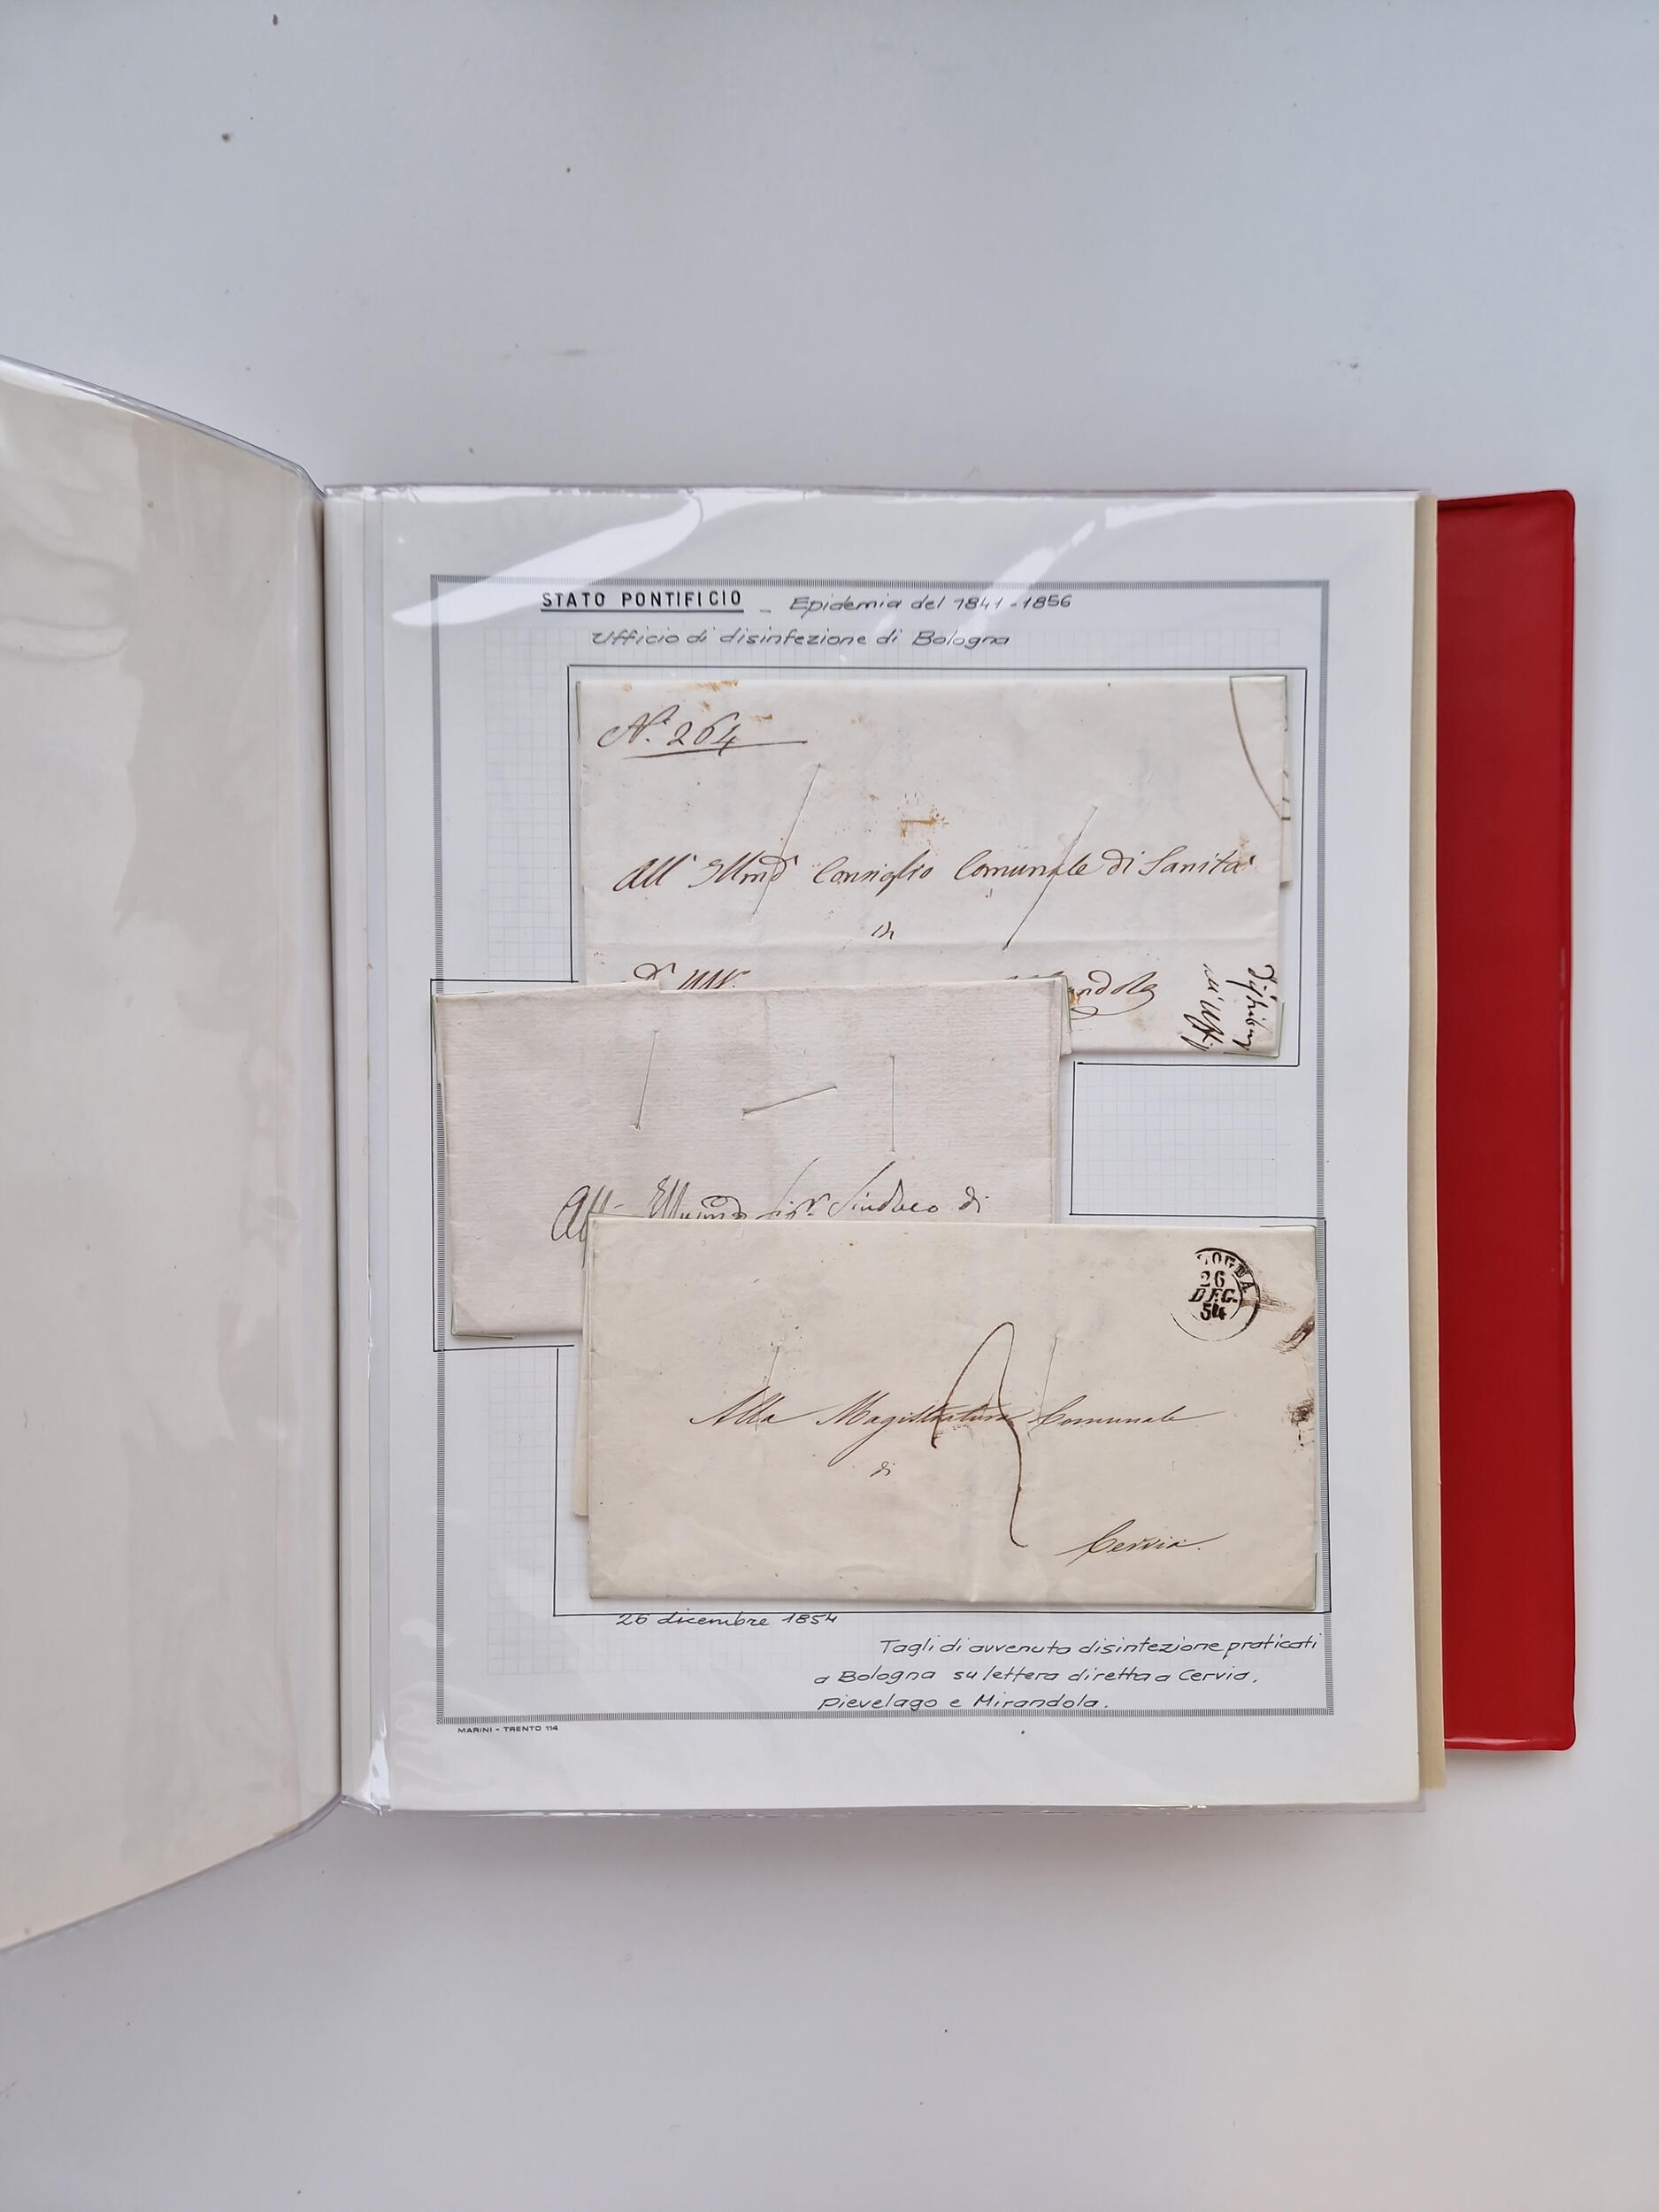 STATO PONTIFICIO - Epidemia del 1841-1856
Ufficio di disinfezione di Bologna
N.° 264
All' Illmo Consiglio Comunale di Sanità
in
ndola
All' Illmo Sigr. Sindaco di
OGNA
26
DEC.
54
Alla Magistratura Comunale
di
Cervia.
26 dicembre 1854
Tagli di avvenuta disinfezione praticati
a Bologna su lettera diretta a Cervia,
Pievelago e Mirandola.
MARINI - TRENTO 114